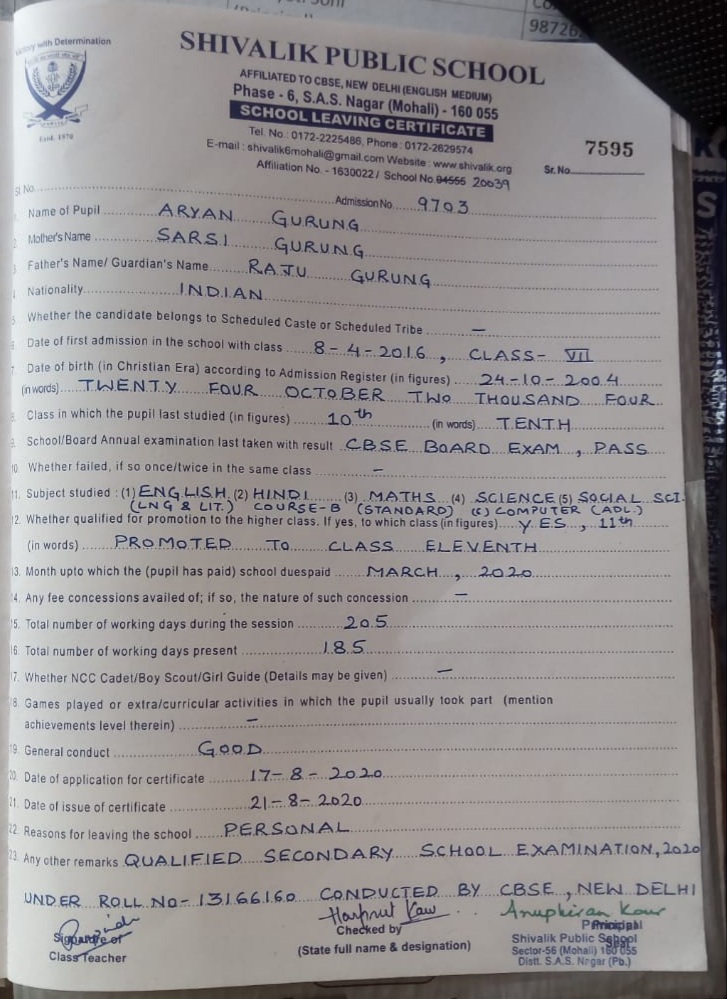 Victory with Determination
Estd. 1970
9872
SHIVALIK PUBLIC SCHOOL
AFFILIATED TO CBSE, NEW DELHI (ENGLISH MEDIUM)
Phase - 6, S.A.S. Nagar (Mohali) - 160 055
SCHOOL LEAVING CERTIFICATE
Tel. No.: 0172-2225486, Phone : 0172-2629574
E-mail : shivalik6mohali@gmail.com Website : www.shivalik.org
Affiliation No. - 1630022 / School No. 04555 20039
7595
Sr. No.
Sl No. Admission No. 9703
1. Name of Pupil ARYAN GURUNG
2. Mother's Name SARSI GURUNG
3. Father's Name/ Guardian's Name RAJU GURUNG
4. Nationality INDIAN
5. Whether the candidate belongs to Scheduled Caste or Scheduled Tribe —
6. Date of first admission in the school with class 8-4-2016, CLASS- VII
7. Date of birth (in Christian Era) according to Admission Register (in figures) 24-10-2004
(in words) TWENTY FOUR OCTOBER TWO THOUSAND FOUR
8. Class in which the pupil last studied (in figures) 10th (in words) TENTH
9. School/Board Annual examination last taken with result CBSE BOARD EXAM, PASS
10. Whether failed, if so once/twice in the same class —
11. Subject studied : (1) ENGLISH (2) HINDI (3) MATHS (4) SCIENCE (5) SOCIAL SCI.
(LNG & LIT.) COURSE-B (STANDARD) (6) COMPUTER (ADL.)
12. Whether qualified for promotion to the higher class. If yes, to which class (in figures) YES, 11th
(in words) PROMOTED TO CLASS ELEVENTH
13. Month upto which the (pupil has paid) school duespaid MARCH, 2020
14. Any fee concessions availed of; if so, the nature of such concession —
15. Total number of working days during the session 205
16. Total number of working days present 185
17. Whether NCC Cadet/Boy Scout/Girl Guide (Details may be given) —
18. Games played or extra/curricular activities in which the pupil usually took part (mention
achievements level therein) —
19. General conduct GOOD
20. Date of application for certificate 17-8-2020
21. Date of issue of certificate 21-8-2020
22. Reasons for leaving the school PERSONAL
23. Any other remarks QUALIFIED SECONDARY SCHOOL EXAMINATION, 2020
UNDER ROLL NO- 13166160 CONDUCTED BY CBSE, NEW DELHI
Harpreet Kaur
Anupkiran Kaur
Signature of
Class Teacher
Checked by
(State full name & designation)
Principal
Shivalik Public School
Sector-56 (Mohali) 160 055
Distt. S.A.S. Nagar (Pb.)